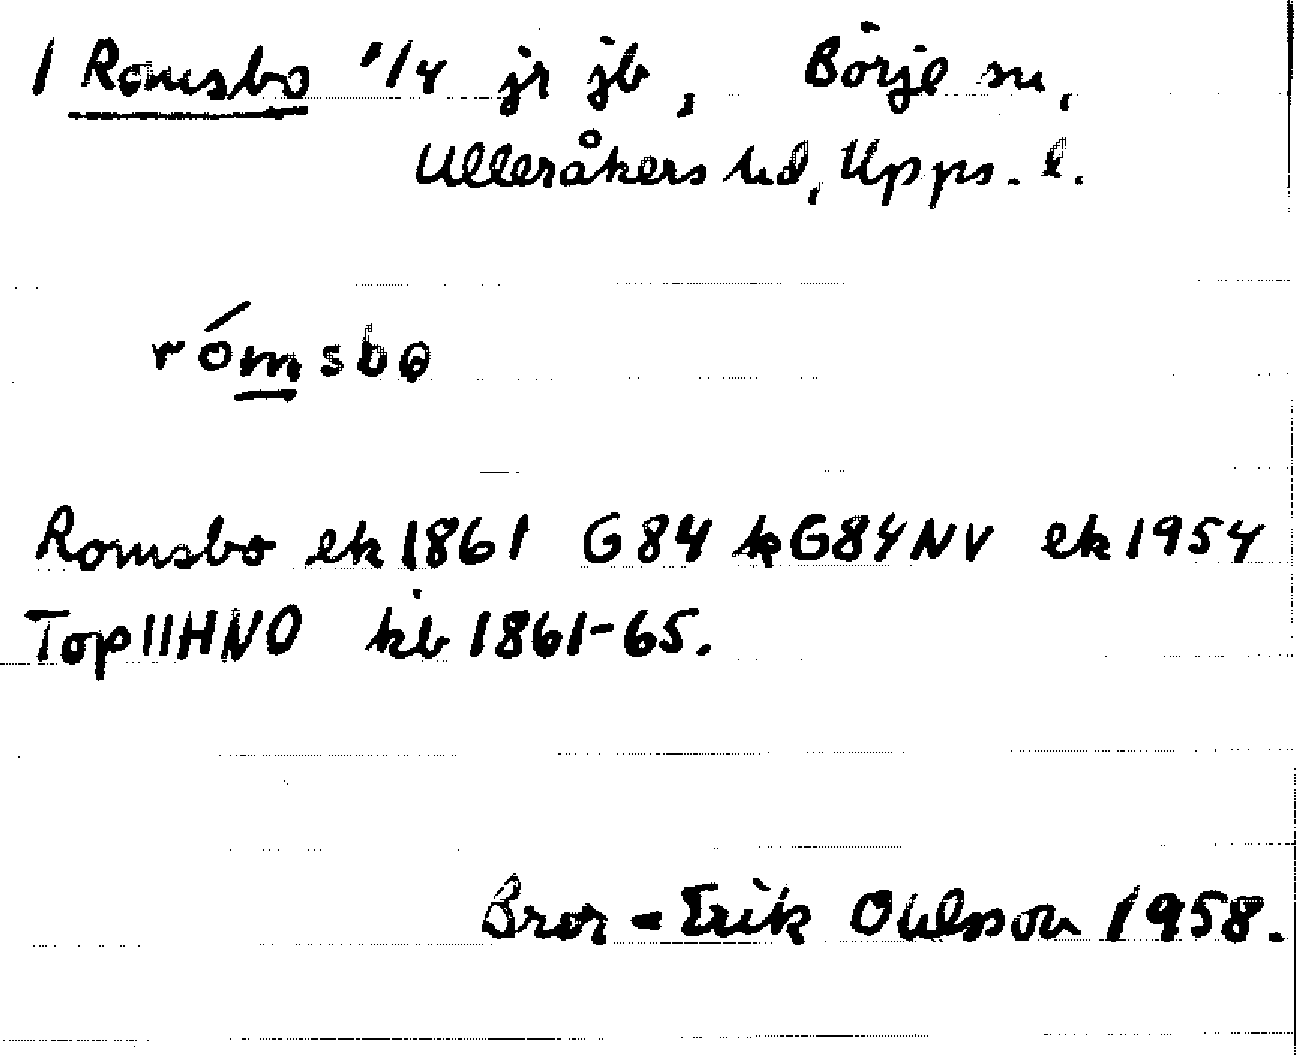 1 Romsbo 1/4 jr jb, Börje sn,
Ulleråkers hd, Upps. l.
rómsbo
Romsbo ek 1861 G84 k G84NV ek 1954
Top 11HNO kb 1861-65.
Bror-Erik Ohlsson 1958.